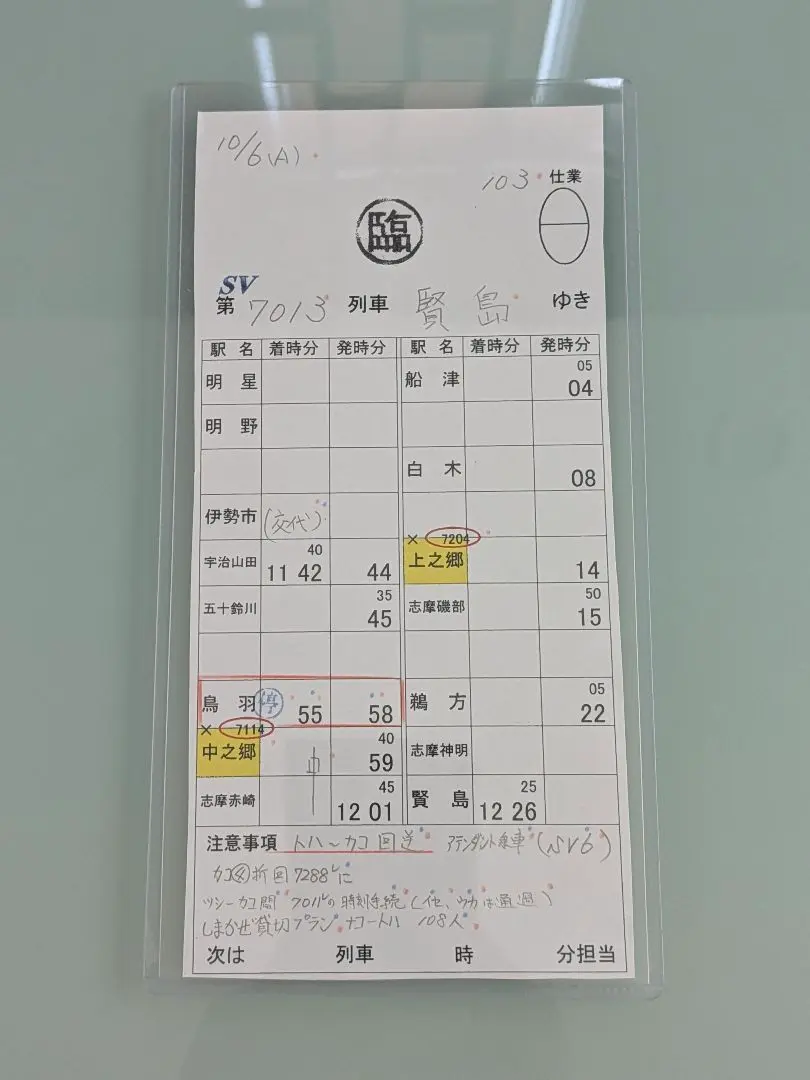 10/6(A)
103 仕業
臨
SV
第 7013 列車 賢島 ゆき
駅名 着時分 発時分 駅名 着時分 発時分
明星 船津 05 04
明野
白木 08
伊勢市 (交代)
× 7204
宇治山田 40 11 42 44 上之郷 14
五十鈴川 35 45 志摩磯部 50 15
鳥羽 停 55 58 鵜方 05 22
× 7114
中之郷 40 59 志摩神明
志摩赤崎 45 12 01 賢島 25 12 26
注意事項 トハ~カコ回送 アテンダント乗車 (SV6)
カコ 折回 7288レに
ツシーカコ間 7011レの時刻手続(イセ、ウカは通過)
しまかぜ貸切プラン ナコートハ 108人
次は 列車 時 分担当